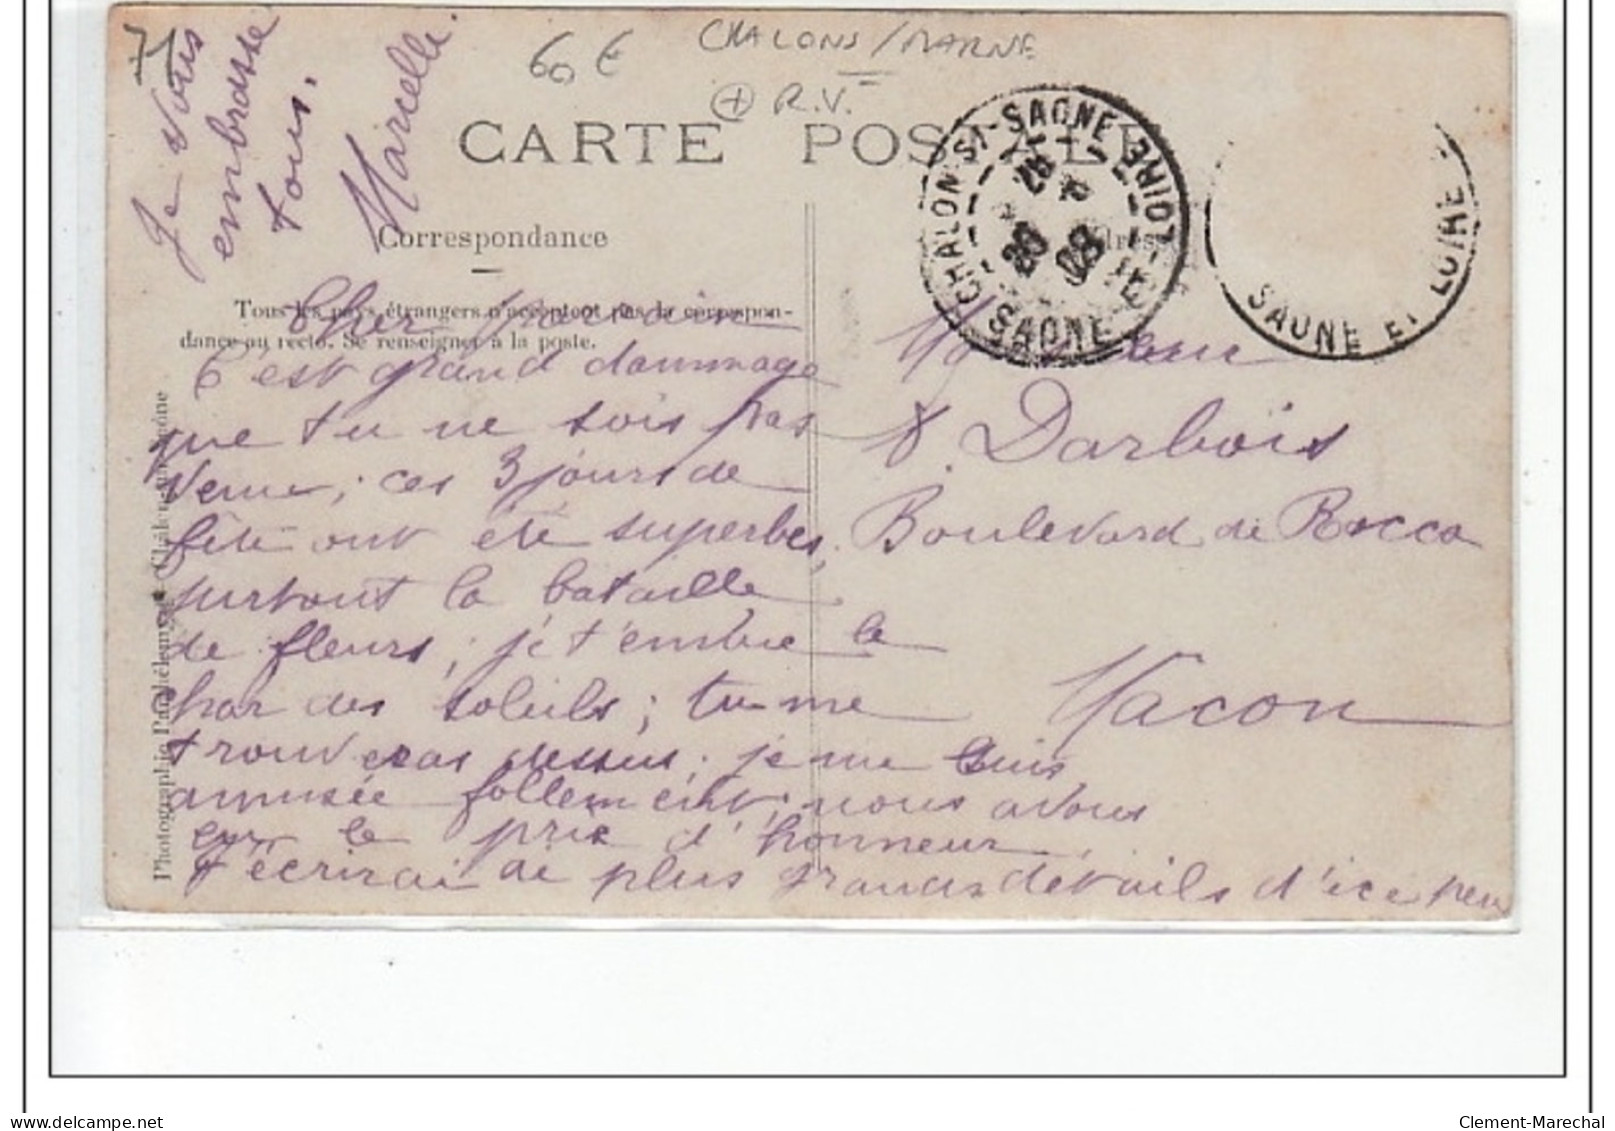 71
60 €
CHALONS/MARNE
+ R.V.
Je vous
embrasse
tous.
Marcelle
CARTE POSTALE
Correspondance
Adresse
Tous les pays étrangers n'acceptent pas la correspon-
dance au recto. Se renseigner à la poste.
CHALON-S-SAONE
SAONE ET LOIRE
20 08
SAONE ET LOIRE
Photographie
Cher parrain
C'est grand dommage
que tu ne sois pas
venu; ces 3 jours de
fête ont été superbes,
surtout la bataille
de fleurs; je t'envoie le
char des soleils; tu me
trouveras dessus; je me suis
amusée follement; nous avons
eu le prix d'honneur.
t'écrirai de plus grands détails d'ice peu
Monsieur
Darbois
Boulevard de Rocca
Macon
Clement-Marechal